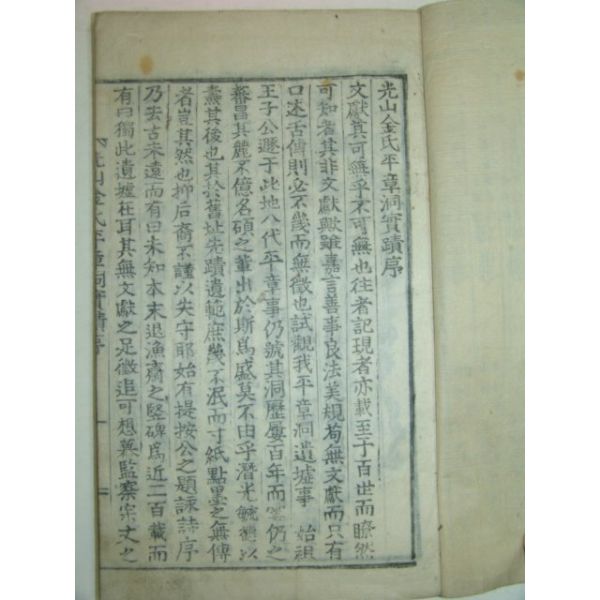 光山金氏平章洞實蹟序
文獻其可無乎不可無也往者記現者亦載至于百世而瞭然
可知者其非文獻歟雖嘉言善事良法美規苟無文獻而只有
口述舌傳則必不幾而無徵也試觀我平章洞遺墟事 始祖
王子公遯于此地八代平章事仍號其洞歷屢百年而 仍之
蕃昌其麗不億名碩之輩出於斯爲盛莫不由乎潛光毓德以
燾其後也其於舊址先蹟遺範庶幾不泯而寸紙點墨之無傳
者豈其然也抑后裔不謹以失守耶始有提按公之題詠詩序
乃去古未遠而有曰未知本末退漁齋之竪碑爲近二百載而
有曰獨此遺墟在耳其無文獻之足徵追可想矣監察宗丈之
光山金氏平章洞實蹟序 一